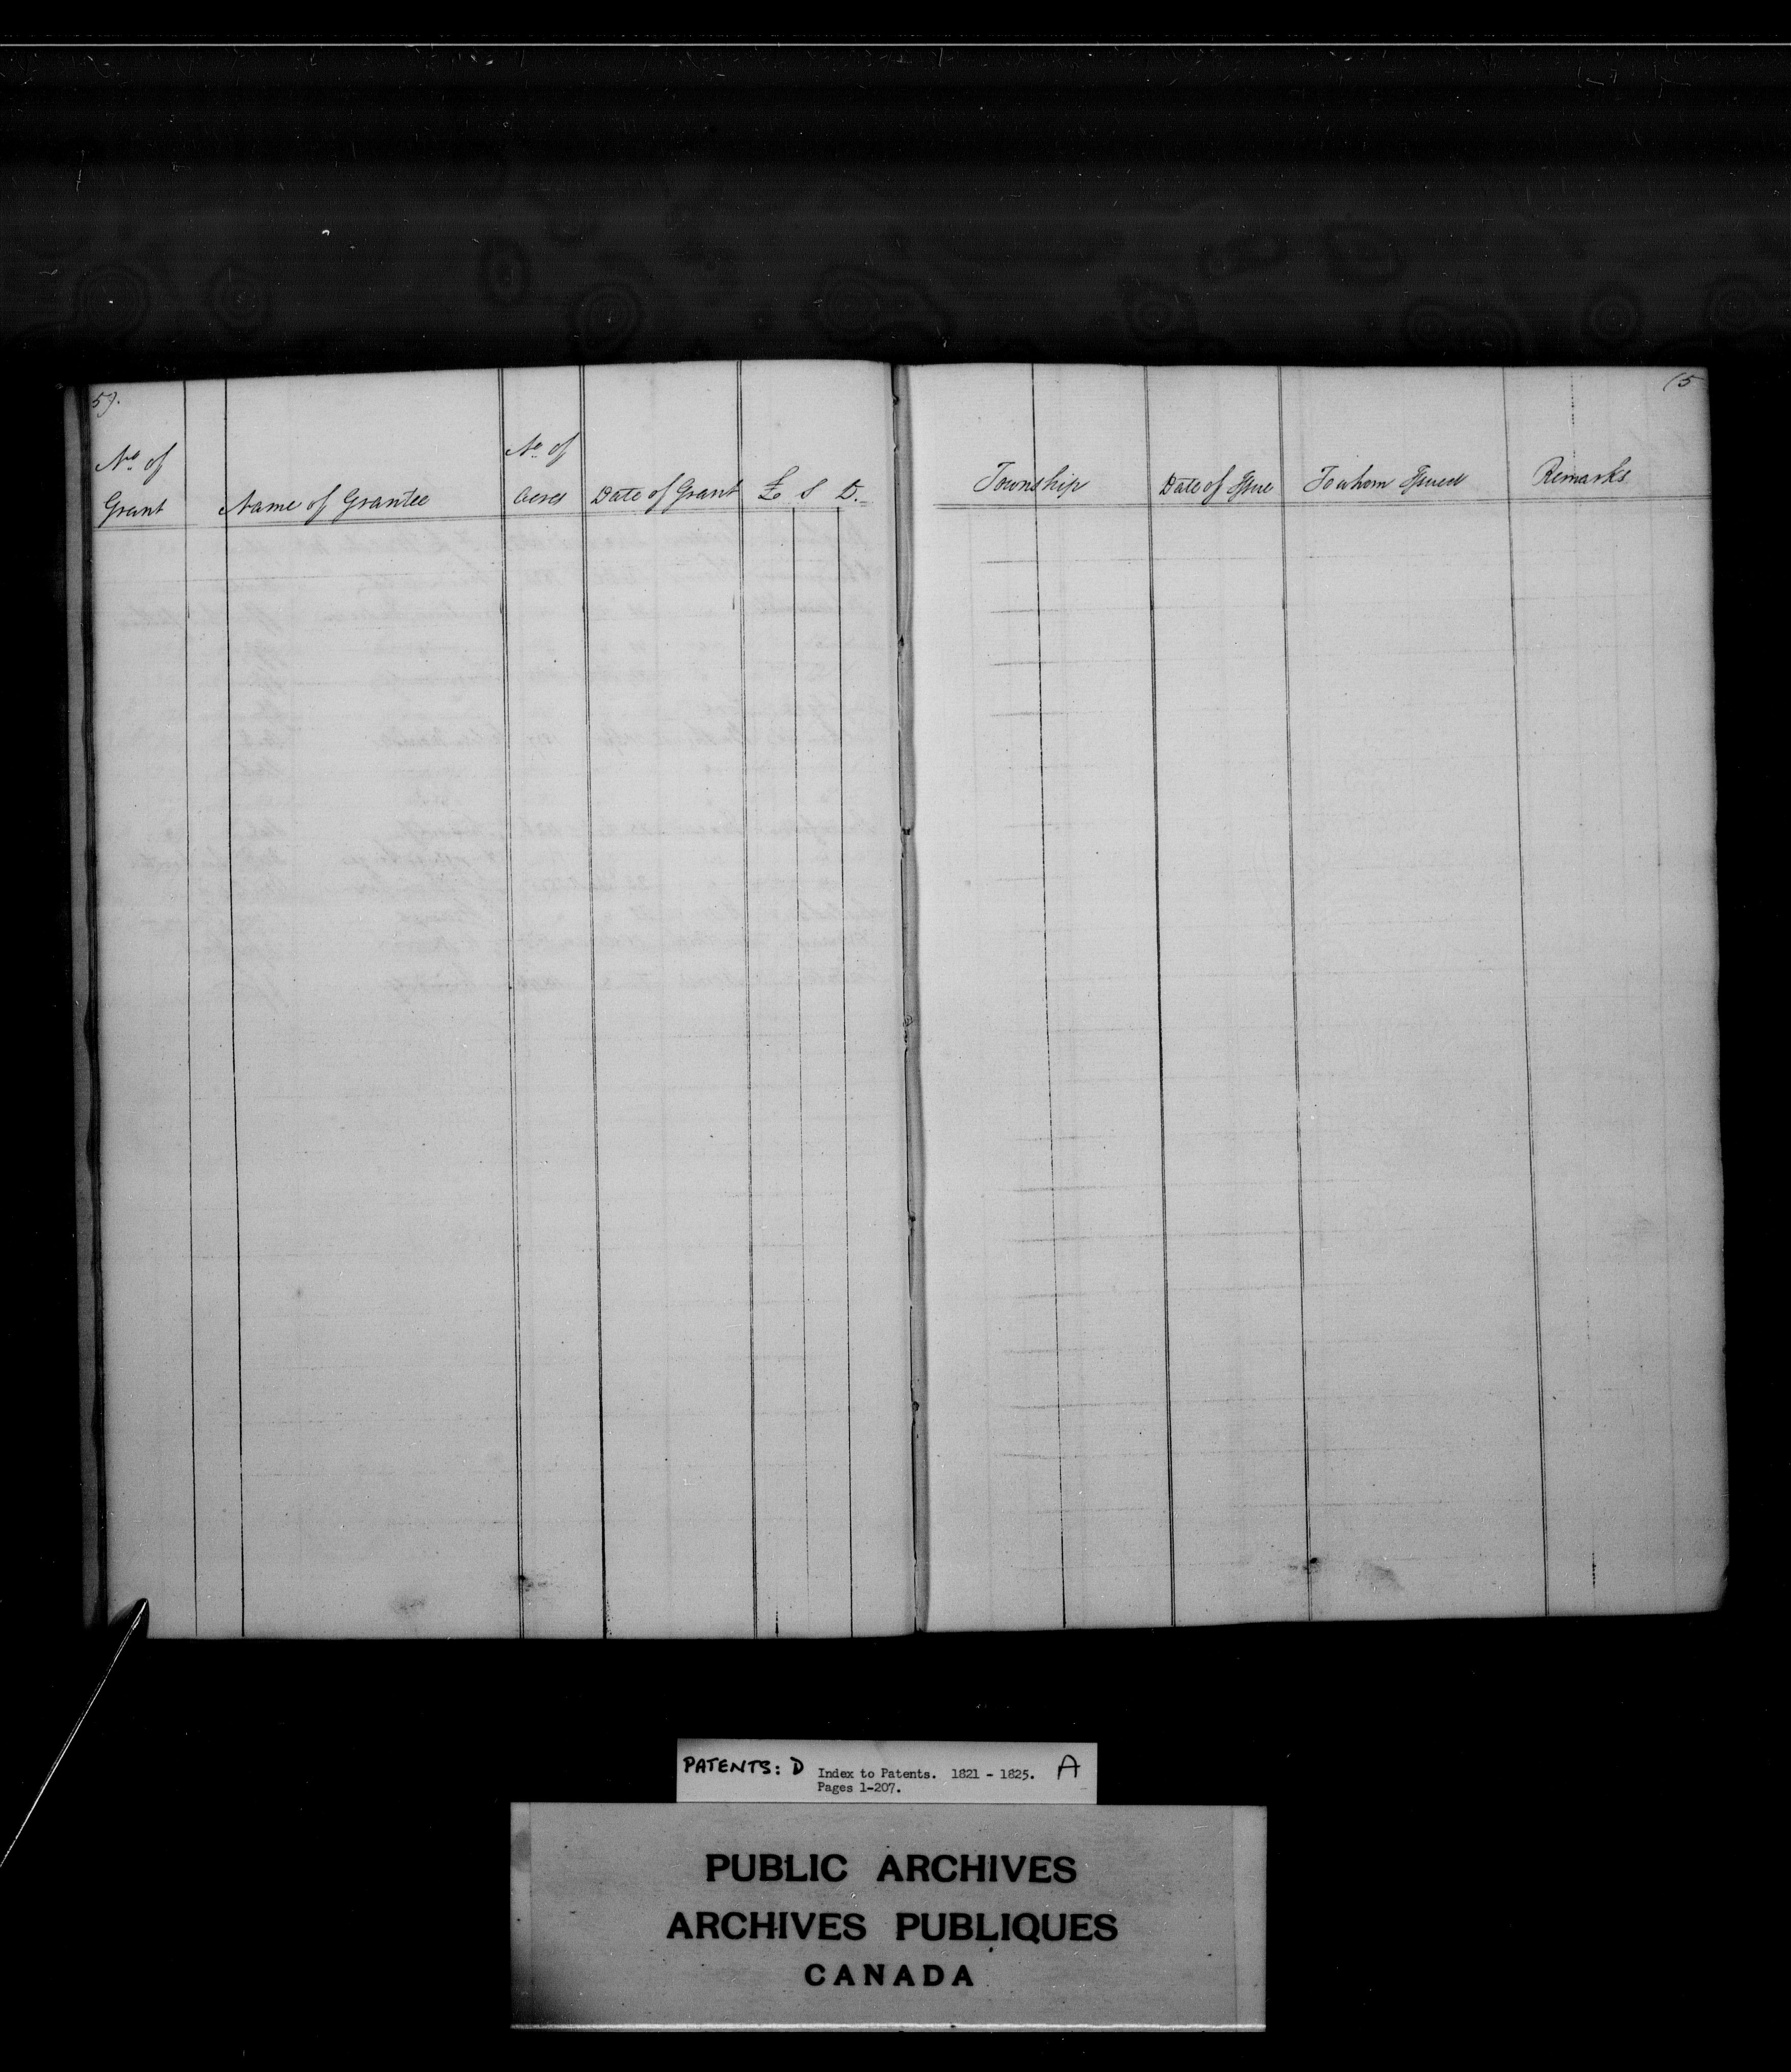 5).
(5
No. of Grant
Name of Grantee
No. of Acres
Date of Grant
£ S D.
Township
Date of Issue
To whom Issued
Remarks
PATENTS: D Index to Patents. 1821 - 1825. A
Pages 1-207.
PUBLIC ARCHIVES
ARCHIVES PUBLIQUES
CANADA